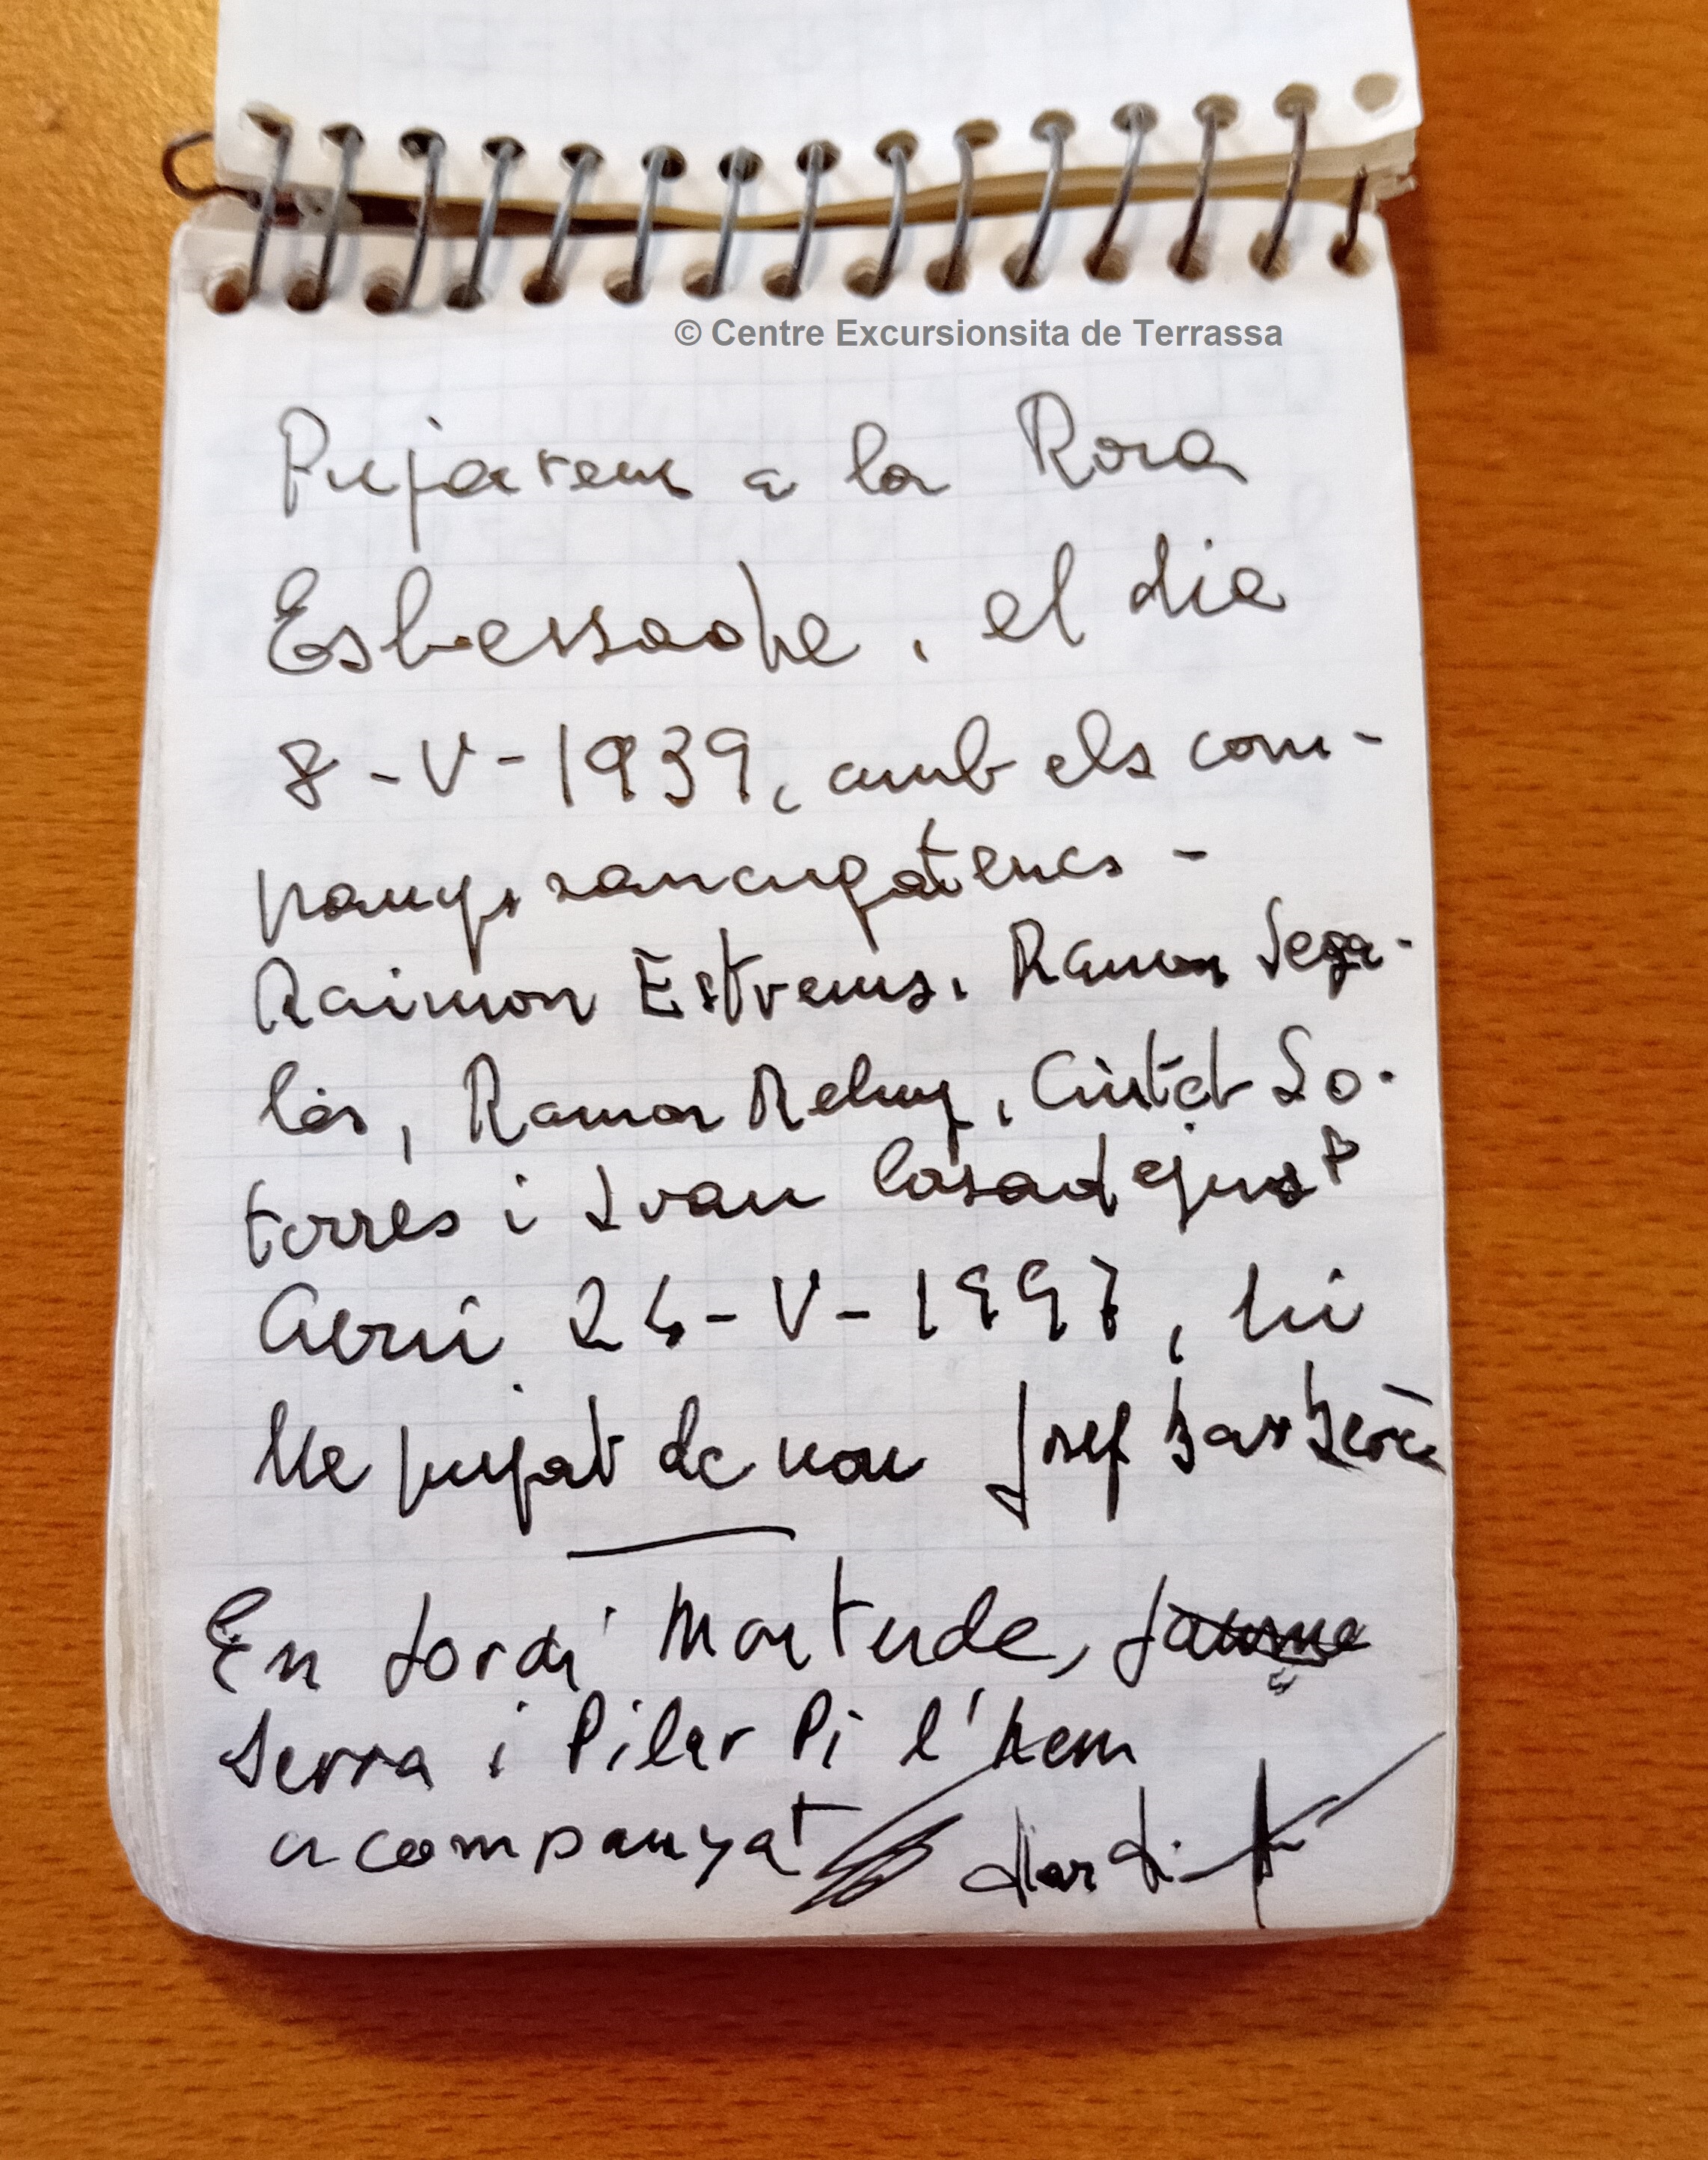 © Centre Excursionsita de Terrassa
Pujàrem a la Roca
Esbessaohe, el dia
8-V-1939, amb els com-
panys sancugatencs -
Raimon Estrems, Ramon Sega-
lés, Ramon
torres i Ivan Casadejus
Avui 24-V-1997, hi
He pujat de nou Josep Barberà
En Jordi Martude, Jaume
Serra i Pilar Pi l'hem
acompanyat